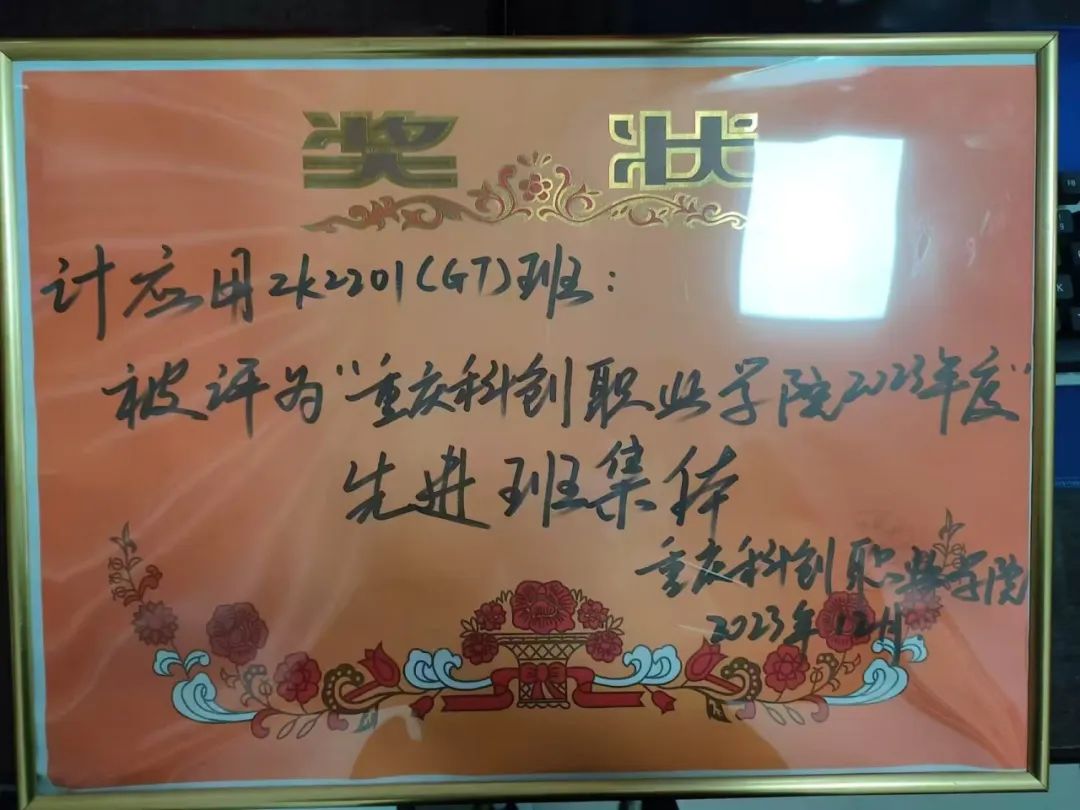 奖状
计应用ZK2201(GT)班:
被评为"重庆科创职业学院2023年度"
先进班集体
重庆科创职业学院
2023年12月